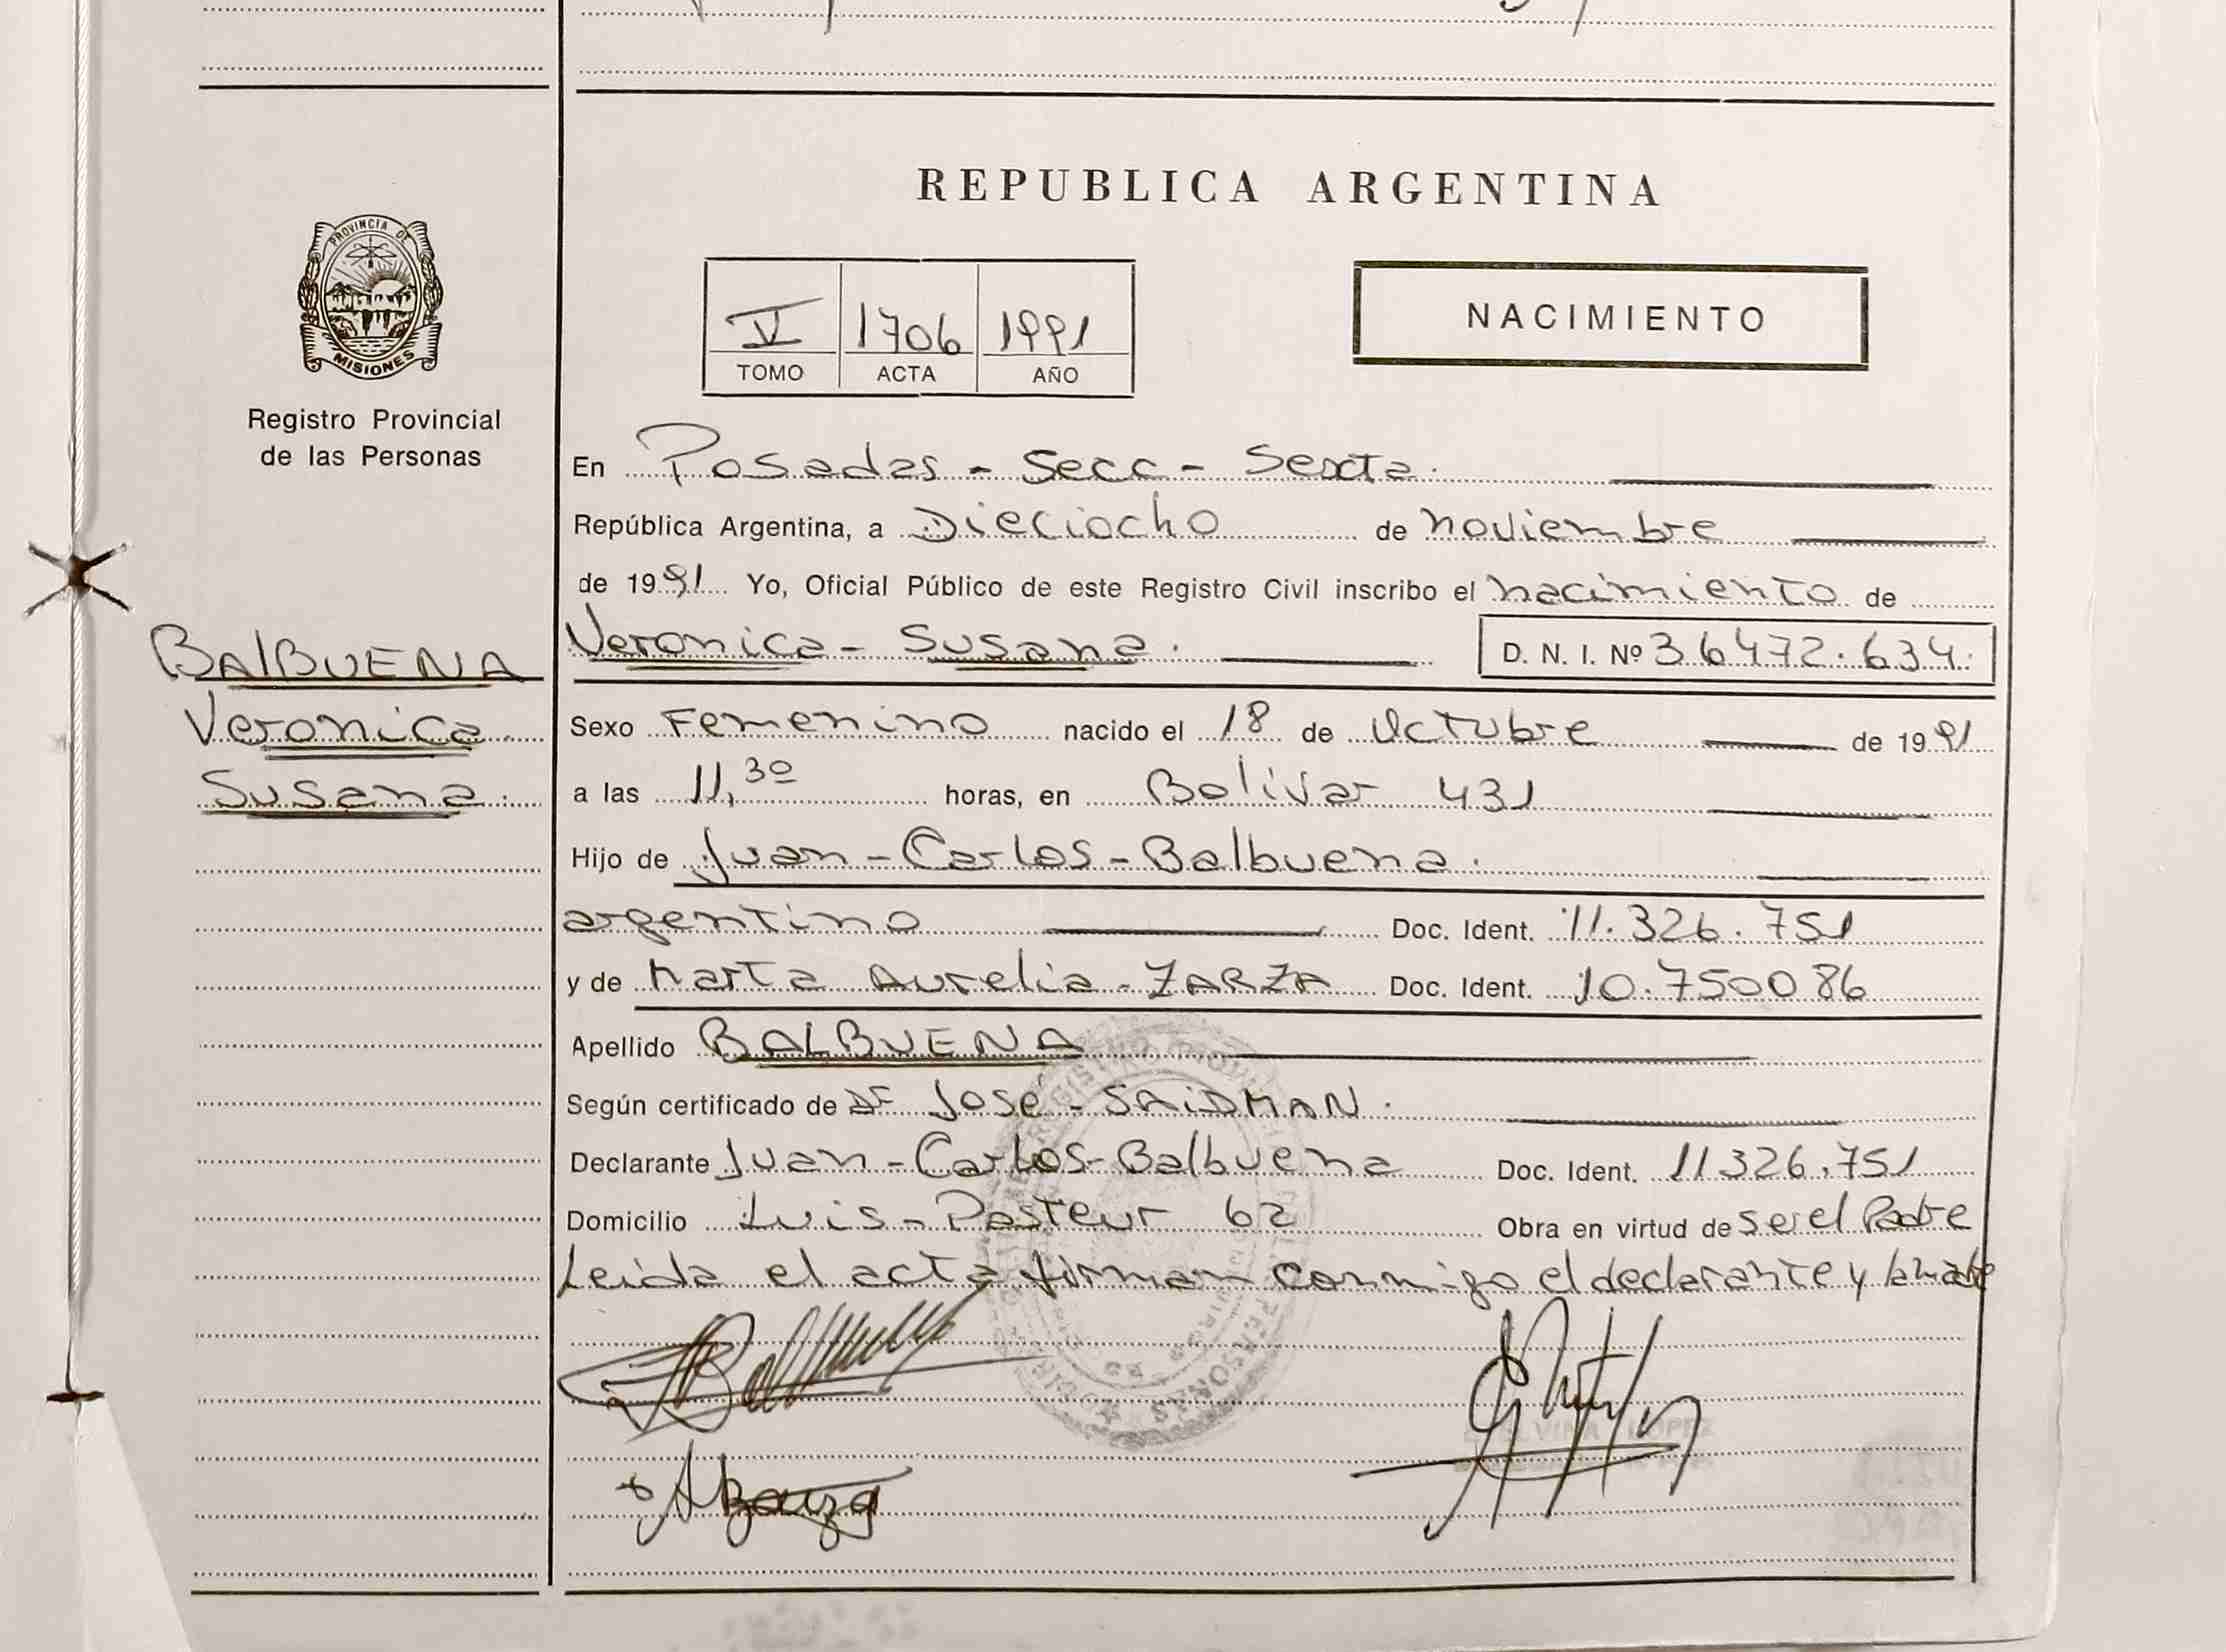 REPUBLICA ARGENTINA
PROVINCIA DE
MISIONES
Registro Provincial
de las Personas
V 1706 1991
TOMO ACTA AÑO
NACIMIENTO
En Posadas - Secc - Sexta.
República Argentina, a Dieciocho de noviembre
de 1991 Yo, Oficial Público de este Registro Civil inscribo el nacimiento de
BALBUENA
Veronica
Susana.
Veronica - Susana. D. N. I. Nº 36472.634.
Sexo Femenino nacido el 18 de Octubre de 1991
a las 11,30 horas, en Bolivar 431
Hijo de Juan - Carlos - Balbuena.
argentino Doc. Ident. 11.326.751
y de Marta Aurelia - ZARZA Doc. Ident. 10.750086
Apellido BALBUENA
Según certificado de Dr José - SAIDMAN.
Declarante Juan - Carlos - Balbuena Doc. Ident. 11326.751
Domicilio Luis - Pasteur 62 Obra en virtud de ser el Padre
Leida el acta firman conmigo el declarante y la madre
LOPEZ